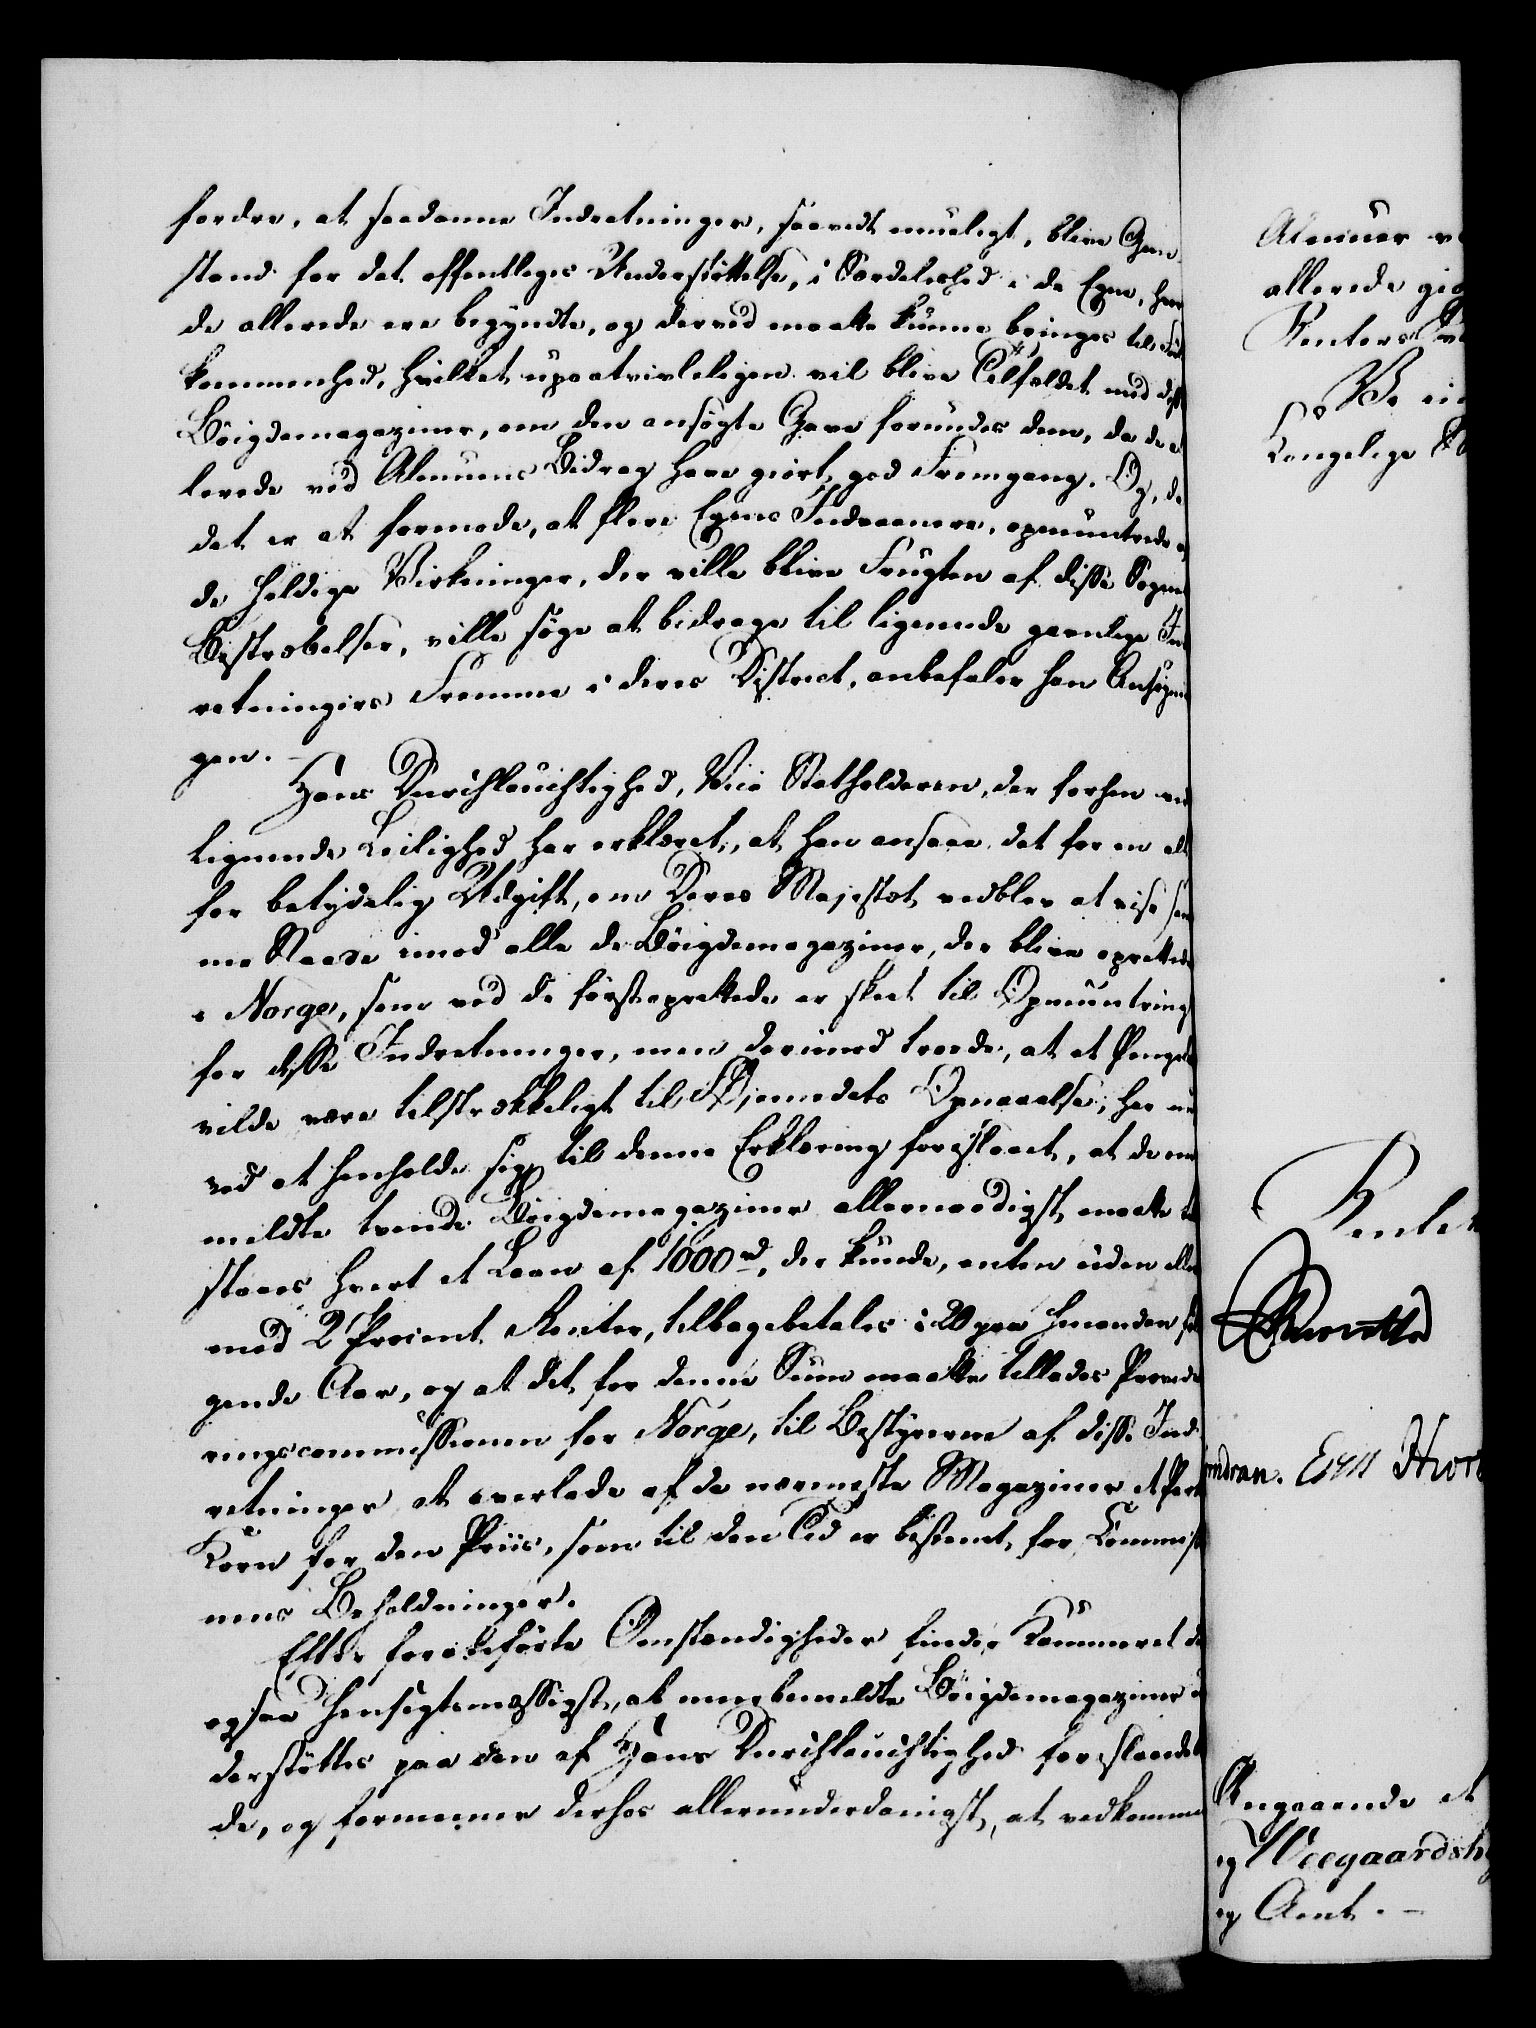 fordre, at saadanne Indretninger, saavidt mueligt, blive Gien-
stand for det offentliges Understøttelse, i Særdeleshed i de Egne, hvor
de allerede ere begyndte, og derved maatte kunne bringes til Fuld-
kommenhed, hvilket upaatvivleligen vil blive Tilfældet med disse
Bøigdemagaziner, om den ansøgte Gave forundes dem, da de al-
lerede ved Almuens Bidrag have giort god Fremgang. Og, da
det er at formode, at flere Egnes Indvaanere, opmuntrede af
de heldige Virkninger, der ville blive Frugten af disse Sognes
Bestræbelser, ville søge at bidrage til lignende gavnlige Ind-
retningers Fremme i deres District, anbefaler han Ansøgnin-
gen. –
Hans Durchlauchtighed, Vice Statholderen, der forhen ved
lignende Leilighed har erklæret, at han ansaae det for en alt
for betydelig Udgift, om Deres Majestæt vedblev at vise sam-
me Naade imod alle de Bøigdemagaziner, der blive oprettede
i Norge, som ved de førstoprettede er skeet til Opmuntring
for disse Indretninger, men derimod troede, at et Pengelaan
vilde være tilstrækkeligt til Øiemedets Opnaaelse, har nu
ved at henholde sig til denne Erklæring foreslaaet, at de om-
meldte tvende Bøigdemagaziner allernaadigst maatte til-
staaes hvert et Laan af 1000 rd, der kunde, enten uden eller
med 2 Procent Renter, tilbagebetales i 20 paa hinanden føl-
gende Aar, og at det for denne Sum maatte tillades Provide-
ringscommissionen for Norge, til Bestyrerne af disse Ind-
retninger at overlade af de nærmeste Magaziner et Parti
Korn for den Priis, som til den Tid er bestemt for Commissio-
nens Beholdninger.
Efter foranførte Omstændigheder finder Kammeret det
ogsaa hensigtsmæssigst, at ommeldte Bøigdemagaziner un-
derstøttes paa den af Hans Durchlauchtighed foreslaaede Maa-
de, og formener derhos allerunderdanigst, at vedkomme
Almuer
allerede
Renters
Kongelige
Rente
Eyn Hvor
Angaaende et
og Veegaardsh
og Amt. –